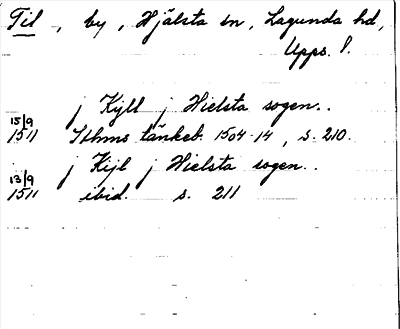 Til , by , Hjälsta sn, Lagunda hd,
Upps. l.
j Kijll j Hielsta sogen..
15/9
1511 Sthms tänkeb. 1504-14, s. 210.
j Kijl j Hielsta sogen..
13/9
1511 ibid. s. 211